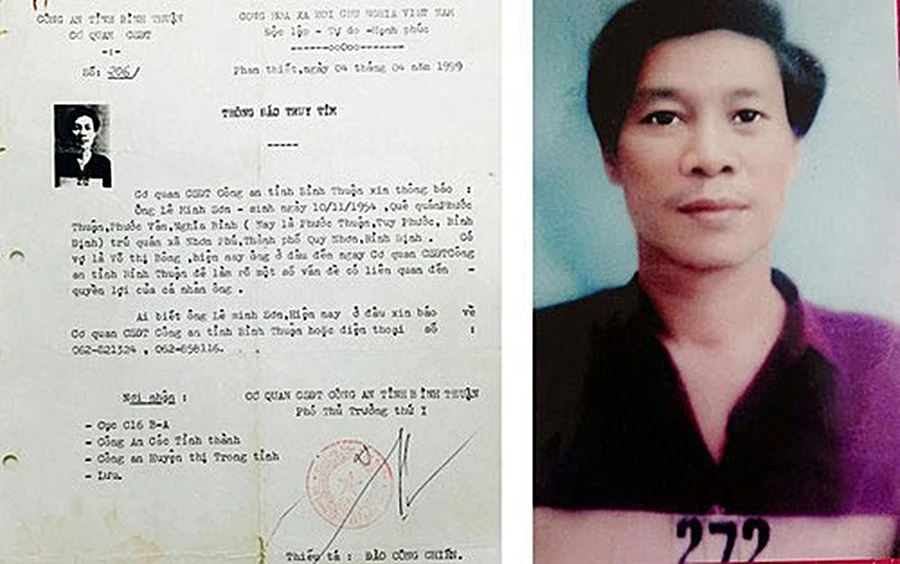 CÔNG AN TỈNH BÌNH THUẬN
CƠ QUAN CSĐT
-:-
Số: 206/
CỘNG HÒA XÃ HỘI CHỦ NGHĨA VIỆT NAM
Độc lập - Tự do - Hạnh phúc
------oo0oo------
Phan thiết, ngày 04 tháng 04 năm 1999
THÔNG BÁO TRUY TÌM
-----
Cơ quan CSĐT Công an tỉnh Bình Thuận xin thông báo :
Ông Lê Minh Sơn - sinh ngày 10/11/1954 ,Quê quán Phước
Thuận,Phước Vân,Nghĩa Bình ( Nay là Phước Thuận,Tuy Phước, Bình
Định) trú quán xã Nhơn Phú,Thành phố Quy Nhơn,Bình Định . Có
vợ là Võ thị Bông ,hiện nay ông ở đâu đến ngay Cơ quan CSĐTCông
an tỉnh Bình Thuận để làm rõ một số vấn đề có liên quan đến -
quyền lợi của cá nhân ông .
Ai biết ông Lê minh Sơn,Hiện nay ở đâu xin báo về
Cơ quan CSĐT Công an tỉnh Bình Thuận hoặc điện thoại số :
062-821324 , 062-858116.
Nơi nhận :
- Cục C16 B-A
- Công An Các Tỉnh thành
- Công an Huyện thị Trong tỉnh
- Lưu.
CƠ QUAN CSĐT CÔNG AN TỈNH BÌNH THUẬN
Phó Thủ Trưởng thứ I
Thiếu tá : ĐÀO CÔNG CHIẾN.
272